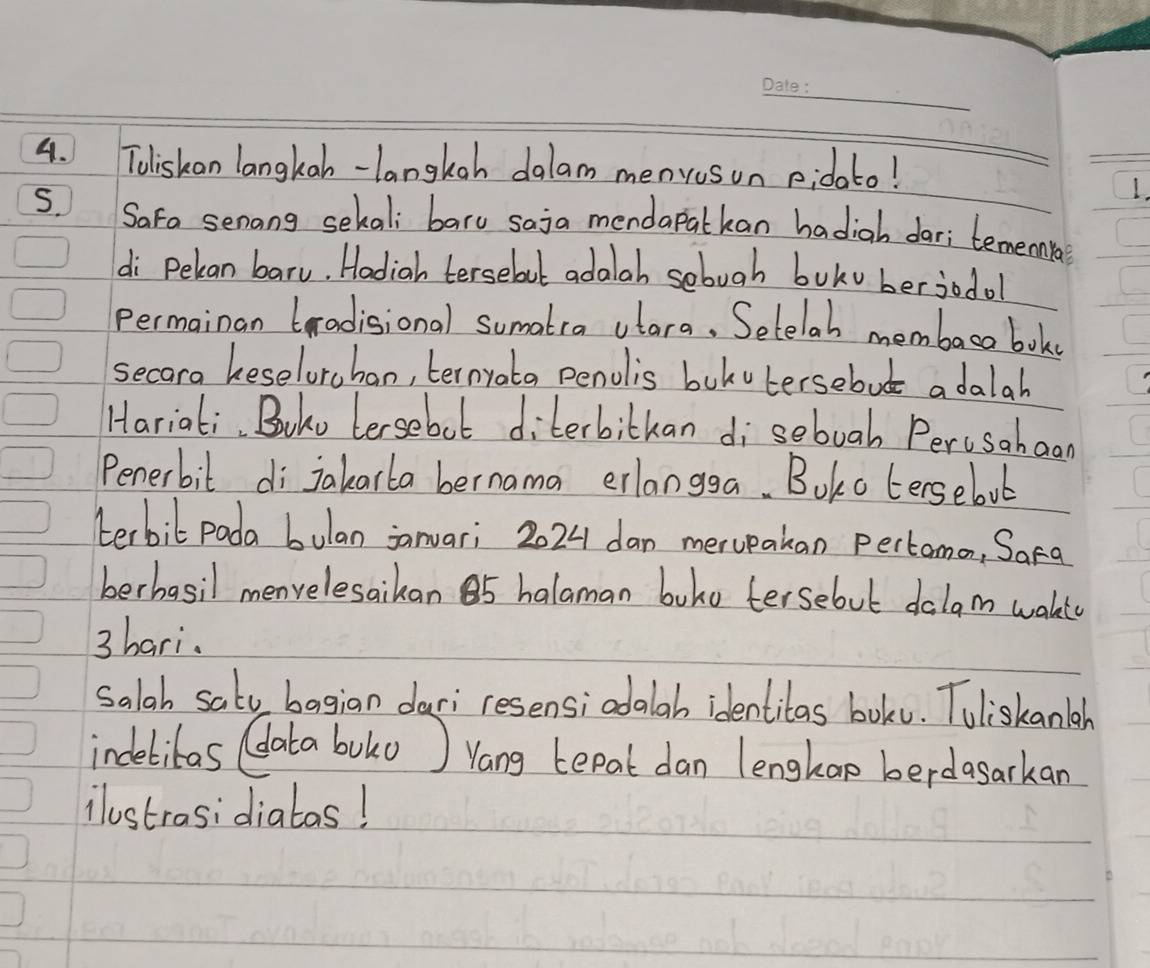 Date :
4. Tuliskan langkah-langkah dalam menyusun pidato!
5. Safa senang sekali baru saja mendapatkan hadiah dari temennya
di Pekan baru. Hadiah tersebut adalah sebuah buku berjudul
Permainan tradisional sumatra utara. Setelah membaca buku
secara keseluruhan, ternyata Penulis buku tersebut adalah
Hariati. Buku tersebut diterbitkan di sebuah Perusahaan
Penerbit di jakarta bernama erlangga. Buku tersebut
terbit pada bulan januari 2024 dan merupakan Pertama, Safa
berhasil menyelesaikan 85 halaman buku tersebut dalam waktu
3 hari.
salah satu bagian dari resensi adalah identitas buku. Tuliskanlah
indetitas (data buku) Yang tepat dan lengkap berdasarkan
ilustrasi diatas!
1.